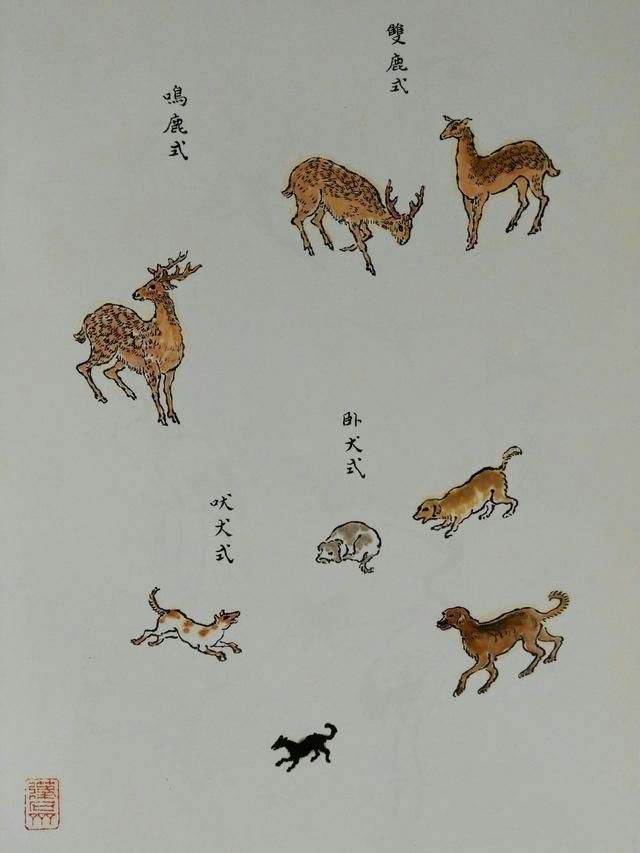 雙鹿式
鳴鹿式
卧犬式
吠犬式